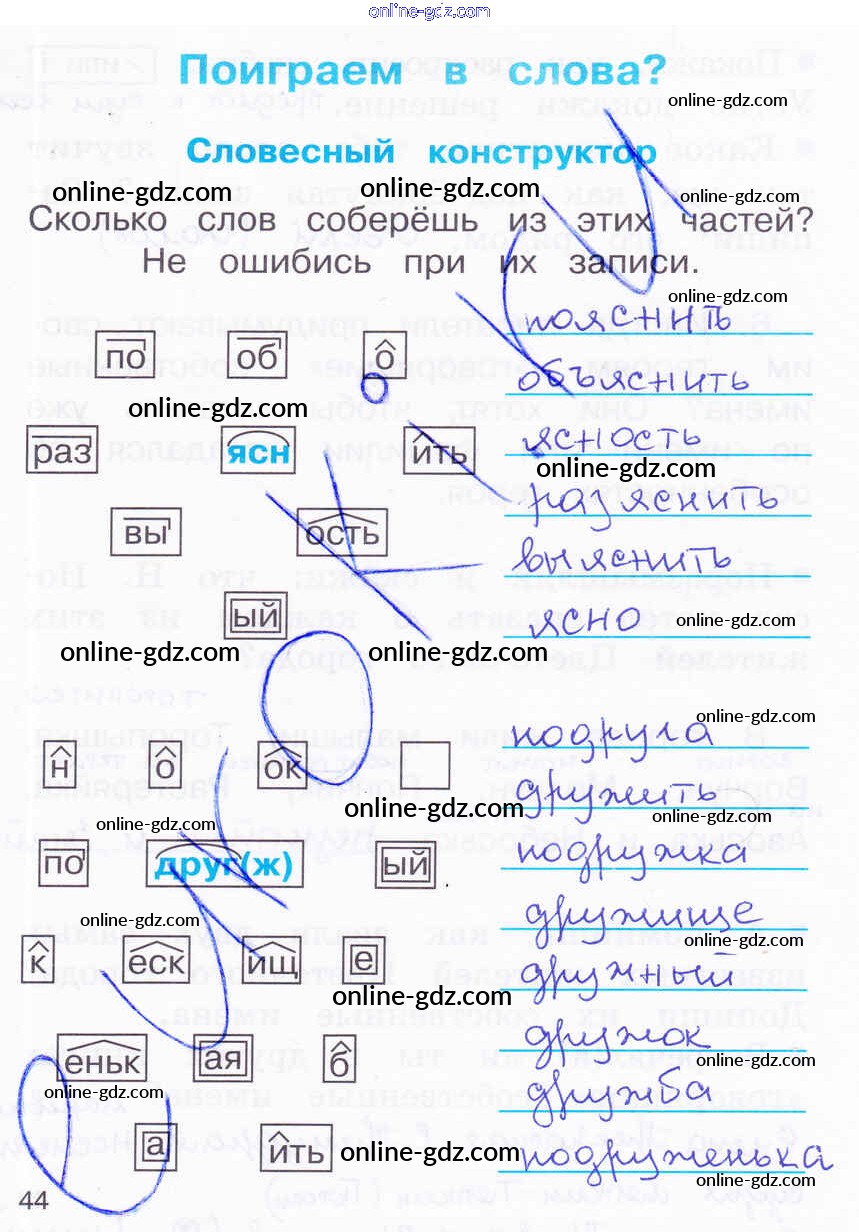 online-gdz.com
Поиграем в слова?
online-gdz.com
Словесный конструктор
online-gdz.com online-gdz.com online-gdz.com
Сколько слов соберёшь из этих частей?
Не ошибись при их записи.
online-gdz.com
пояснить
по об о
объяснить
online-gdz.com
ясность
раз ясн ить
online-gdz.com
разъяснить
вы ость
выяснить
ый
ясно online-gdz.com
online-gdz.com online-gdz.com
подруга online-gdz.com
н о ок
online-gdz.com
дружить
online-gdz.com online-gdz.com
подружка
по друг(ж) ый
online-gdz.com
дружище
online-gdz.com
к еск ищ е
дружный
online-gdz.com
дружок
еньк ая б
online-gdz.com
online-gdz.com
дружба
а ить online-gdz.com
подруженька
online-gdz.com
44